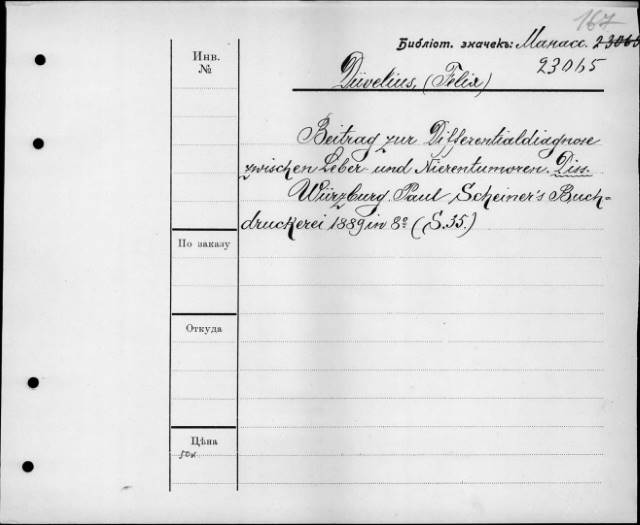 167
Библіот. значекъ: Манасс. 23065
23065
Инв.
№
Düvelius, (Felix)
Beitrag zur Differentialdiagnose
zwischen Leber und Nierentumoren. Diss.
Würzburg. Paul Scheiner's Buch-
druckerei 1889 in 8º (S. 35.)
По заказу
Откуда
Цѣна
50к